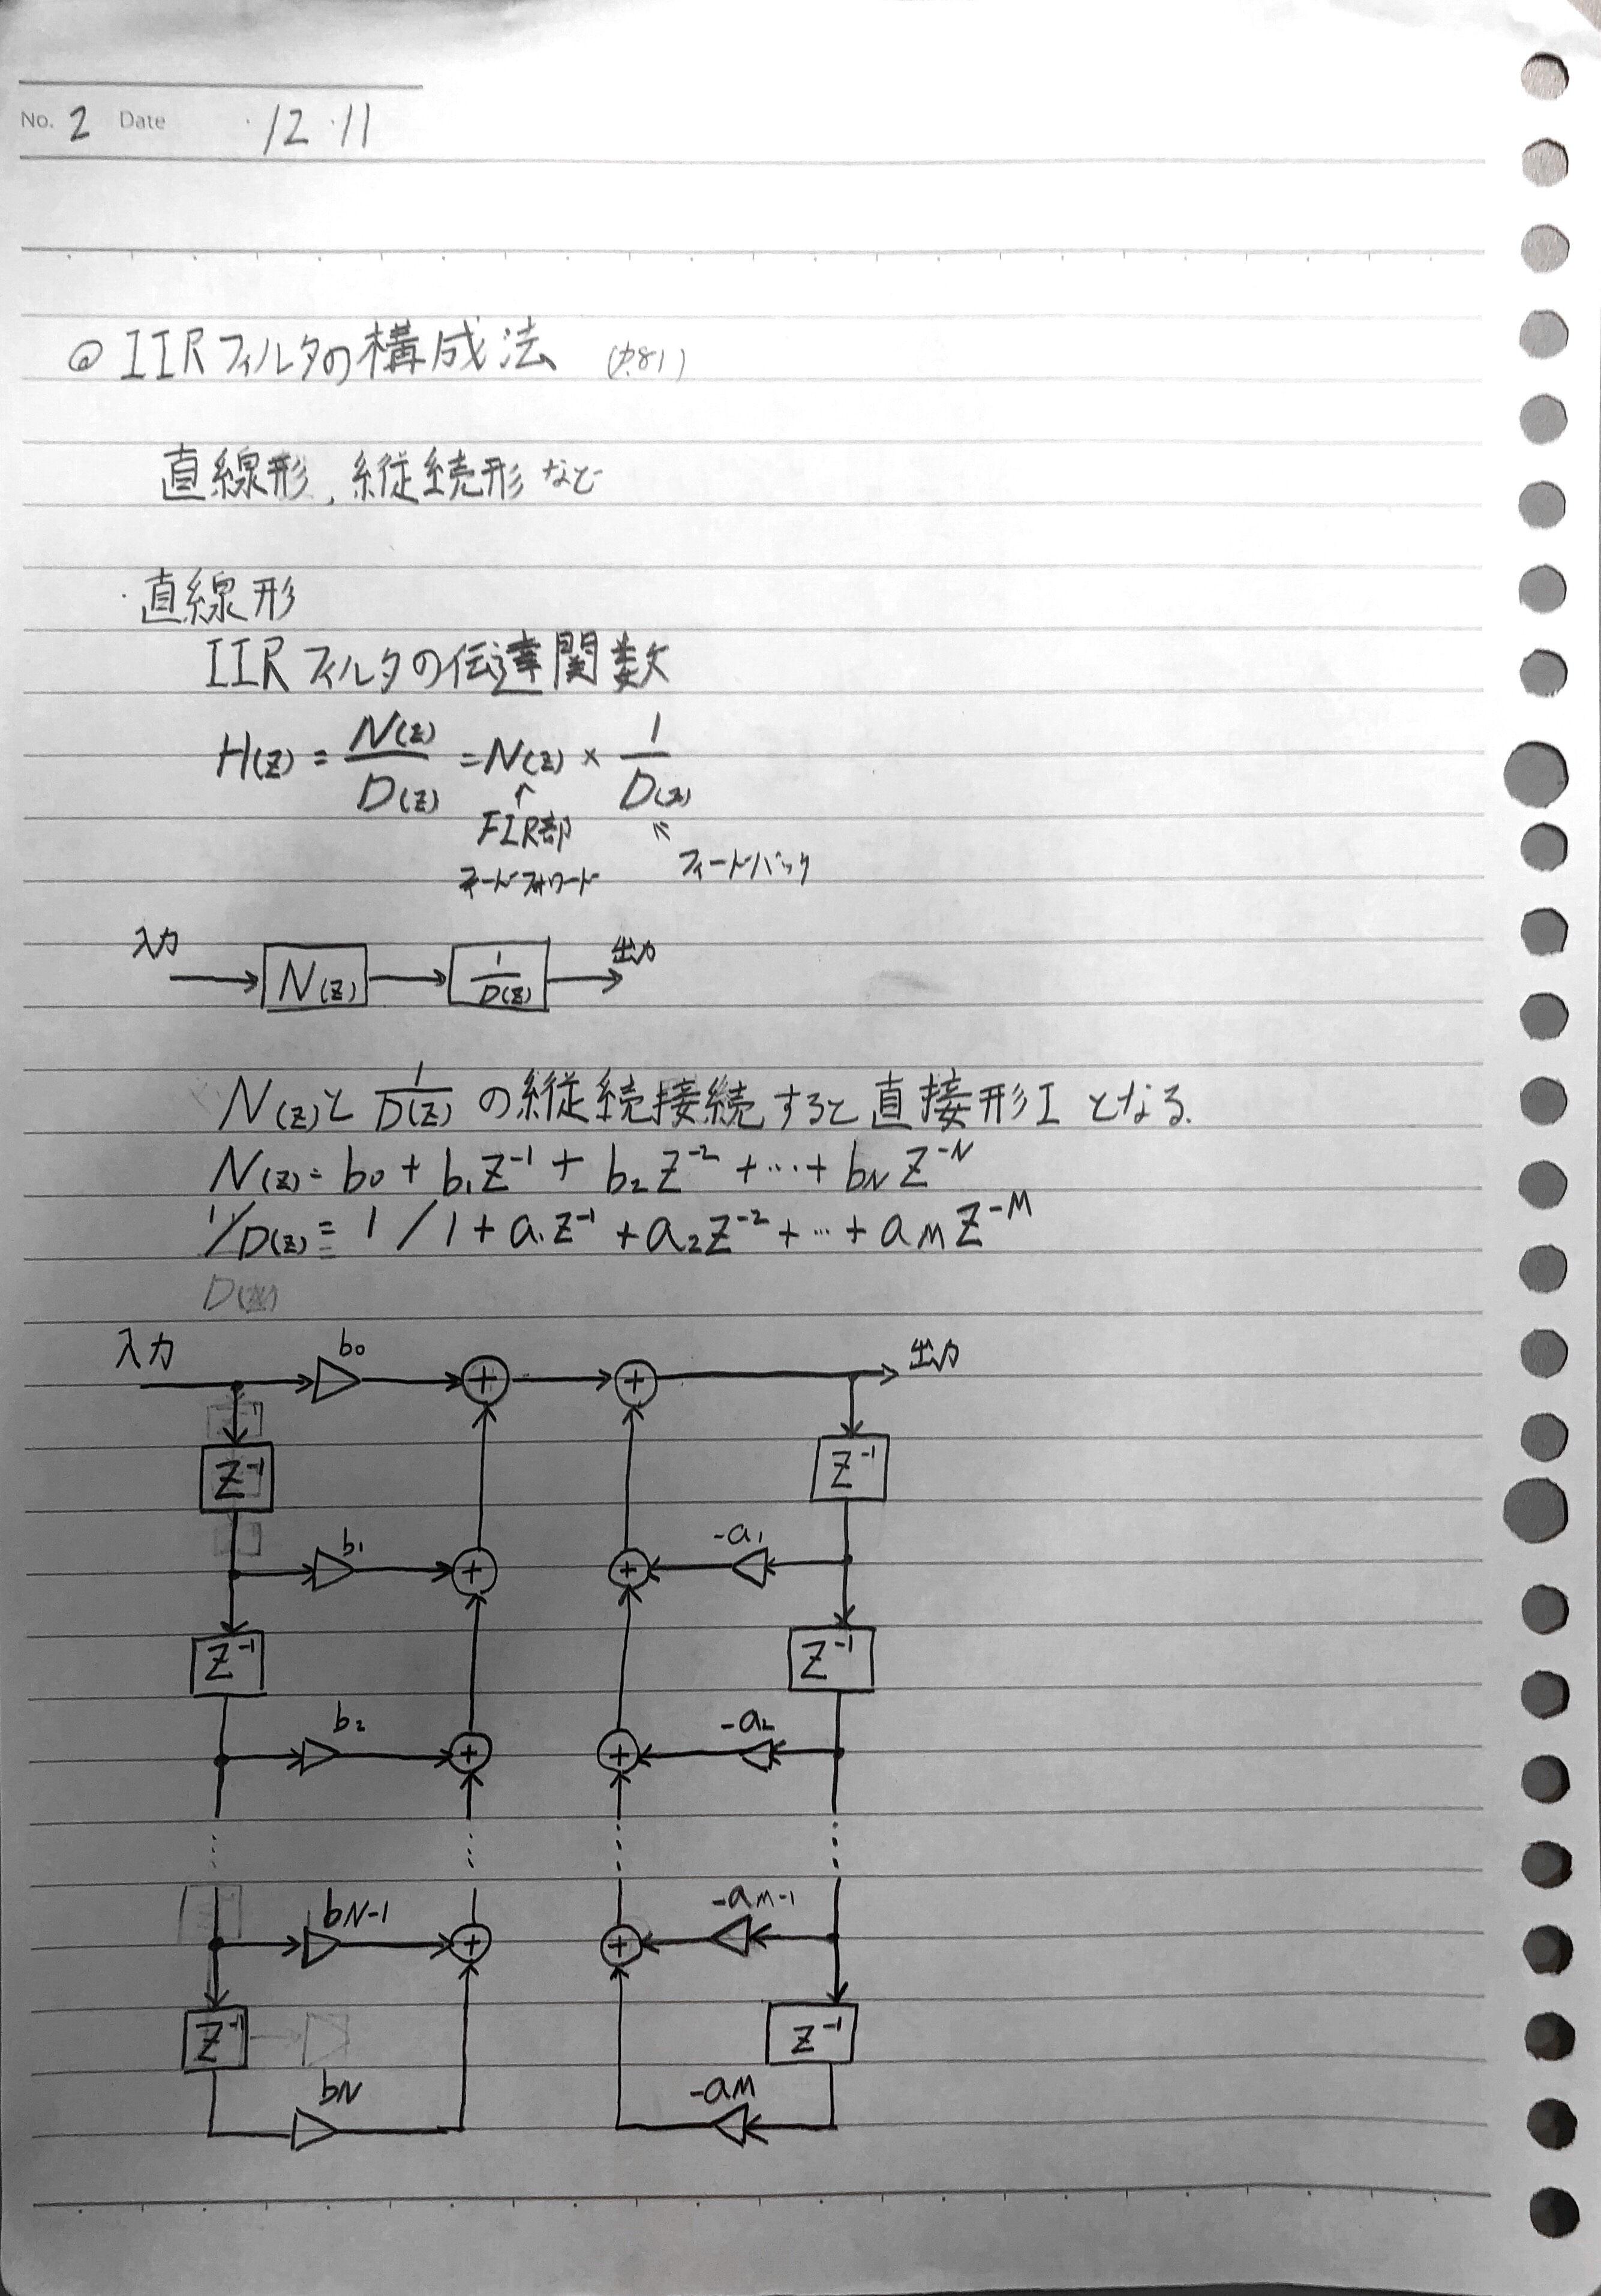 No. 2 Date ・12・11
◎ IIRフィルタの構成法 (p.81)
直線形, 縦続形 など
・直線形
IIRフィルタの伝達関数
H(z) = N(z)/D(z) = N(z) × 1/D(z)
↑ FIR部
フィードバック
入力 → N(z) → 1/D(z) → 出力
N(z)と 1/D(z) の縦続接続すると直接形I となる.
N(z) = b0 + b1z⁻¹ + b2z⁻² + … + bNz⁻ᴺ
1/D(z) = 1 / 1 + a1z⁻¹ + a2z⁻² + … + aMz⁻ᴹ
入力 b0 + + 出力
z⁻¹ z⁻¹
b1 + + -a1
z⁻¹ z⁻¹
b2 + + -a2
bN-1 + + -aM-1
z⁻¹ z⁻¹
bN -aM